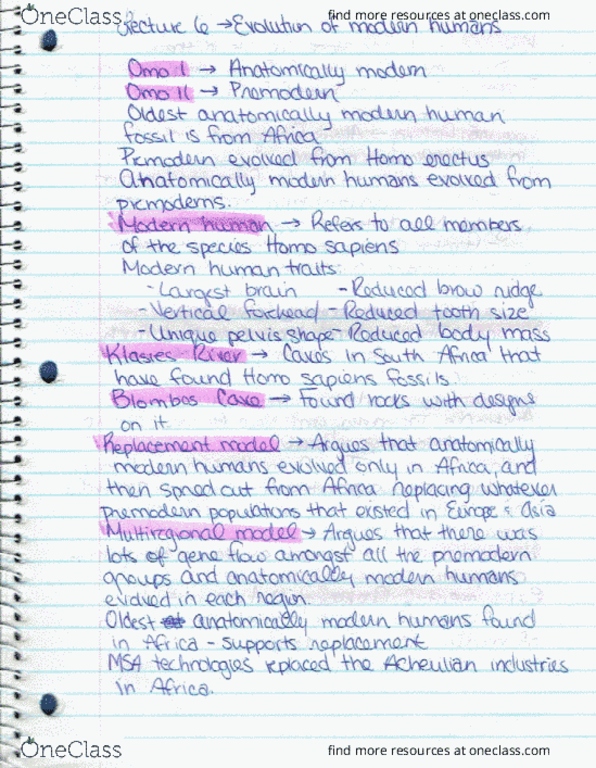 OneClass find more resources at oneclass.com
Lecture 6 → Evolution of modern humans
Omo I → Anatomically modern
Omo II → Premodern
Oldest anatomically modern human
fossil is from Africa
Premodern evolved from Homo erectus
Anatomically modern humans evolved from
premoderns.
Modern human → Refers to all members
of the species Homo sapiens
Modern human traits:
-Largest brain -Reduced brow ridge
-Vertical forehead -Reduced tooth size
-Unique pelvis shape -Reduced body mass
Klasies River → Caves in South Africa that
have found Homo sapiens fossils.
Blombos Cave → Found rocks with designs
on it
Replacement model → Argues that anatomically
modern humans evolved only in Africa, and
then spread out from Africa replacing whatever
premodern populations that existed in Europe & Asia
Multiregional model → Argues that there was
lots of gene flow amongst all the premodern
groups and anatomically modern humans
evolved in each region.
Oldest anatomically modern humans found
in Africa - supports replacement
MSA technologies replaced the Acheulian industries
in Africa.
OneClass find more resources at oneclass.com